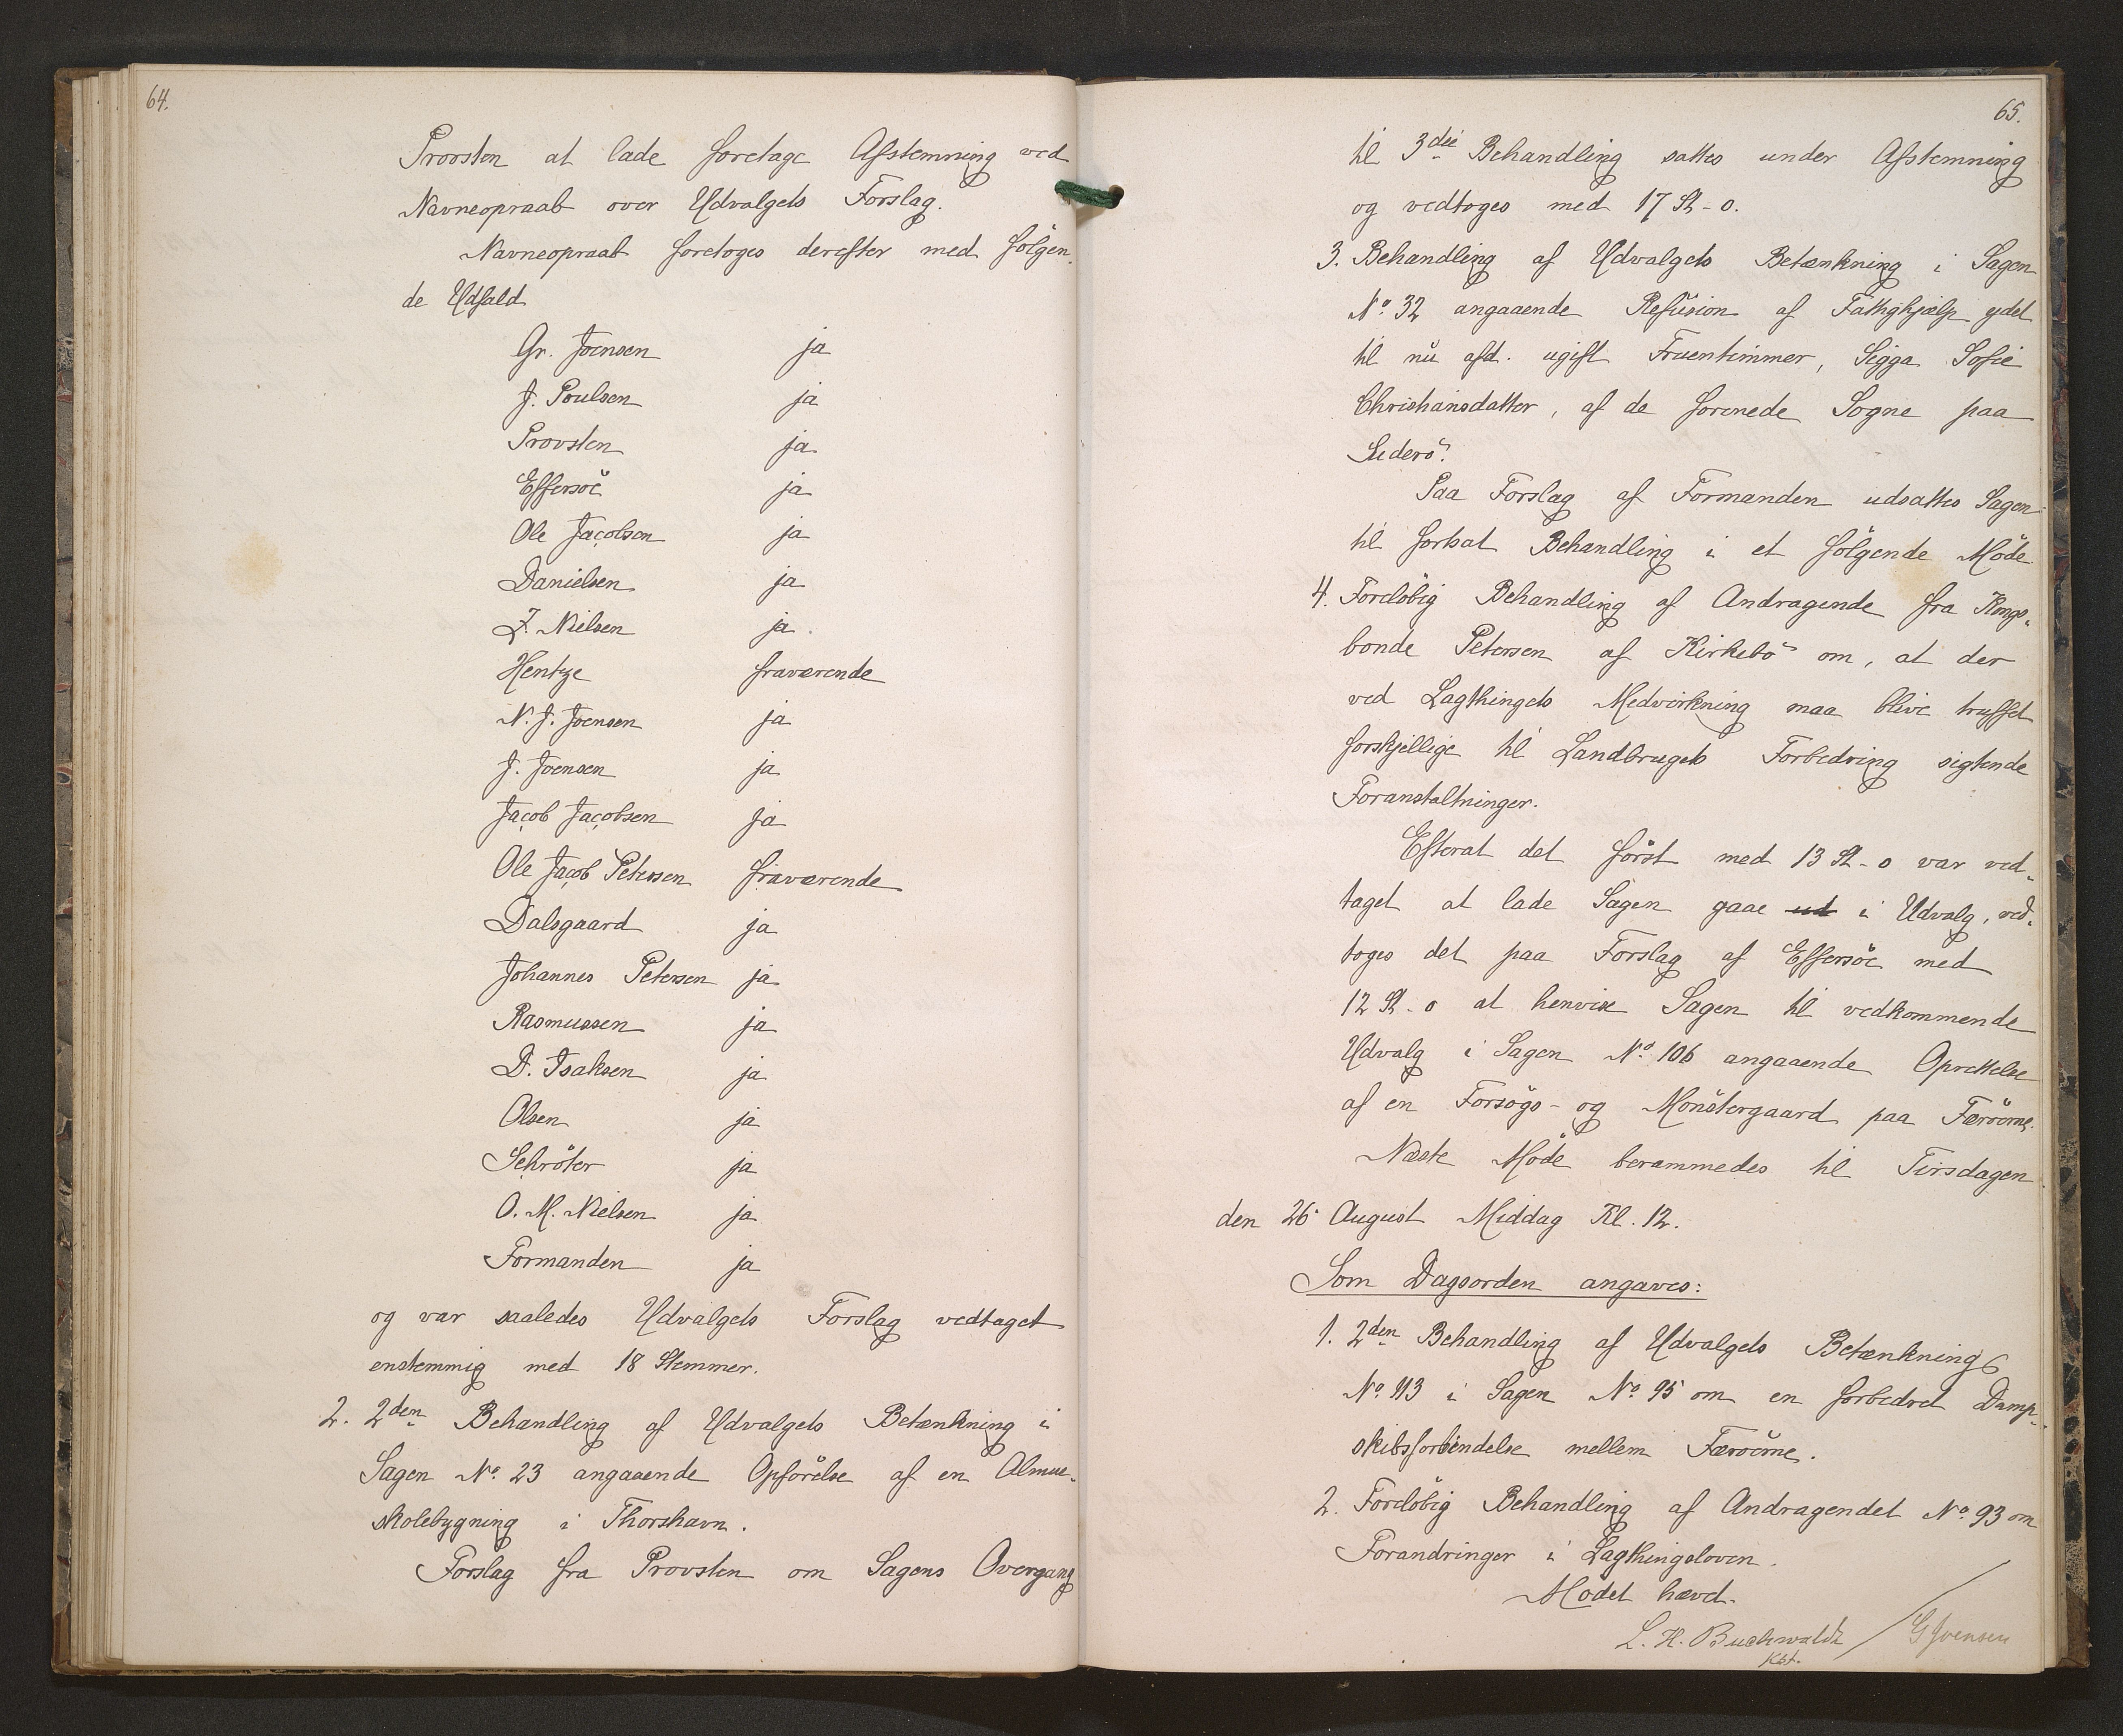 64.
Provsten at lade foretage Afstemning ved
Navneopraab over Udvalgets Forslag.
Navneopraab foretoges derefter med fölgen-
de Udfald
Gr. Joensen ja
J. Poulsen ja
Provsten ja
Effersöe ja
Ole Jacobsen ja
Danielsen ja
Z. Nielsen ja
Hentze fraværende
N. J. Joensen ja
J. Joensen ja
Jacob Jacobsen ja
Ole Jacob Petersen fraværende
Dalsgaard ja
Johannes Petersen ja
Rasmussen ja
D. Isaksen ja
Olsen ja
Schröter ja
O. M. Nielsen ja
Formanden ja
og var saaledes Udvalgets Forslag vedtaget
enstemmig med 18 Stemmer.
2. 2den Behandling af Udvalgets Betænkning i
Sagen No. 23 angaaende Opförelse af en Almue-
skolebygning i Thorshavn.
Forslag fra Provsten om Sagens Overgang
65.
til 3die Behandling sattes under Afstemning
og vedtoges med 17 St - 0.
3. Behandling af Udvalgets Betænkning i Sagen
No. 32 angaaende Refusion af Fattighjælp ydet
til nu afd. ugift Fruentimmer, Sigga Sofie
Christiansdatter, af de forenede Sogne paa
Suderö.
Paa Forslag af Formanden udsattes Sagen
til fortsat Behandling i et fölgende Möde
4. Foreløbig Behandling af Andragende fra Kongs-
bonde Petersen af Kirkebö om, at der
ved Lagthingets Medvirkning maa blive truffet
forskjellige til Landbrugets Forbedring sigtende
Foranstaltninger.
Efterat det först med 13 St - 0 var ved-
taget at lade Sagen gaae ud i Udvalg, ved-
toges det paa Forslag af Effersöe med
12 St - 0 at henvise Sagen til vedkommende
Udvalg i Sagen No. 106 angaaende Oprettelse
af en Forsögs- og Mönstergaard paa Færöerne.
Næste Möde berammedes til Tirsdagen
den 26 August Middag Kl. 12.
Som Dagsorden angaves:
1. 2den Behandling af Udvalgets Betænkning
No. 113 i Sagen No. 95 om en forbedret Damp-
skibsforbindelse mellem Færöerne.
2. Forelöbig Behandling af Andragendet No. 93 om
Forandringer i Lagthingsloven.
Mödet hævet.
L. H. Buchwaldt / G Joensen
Kst.